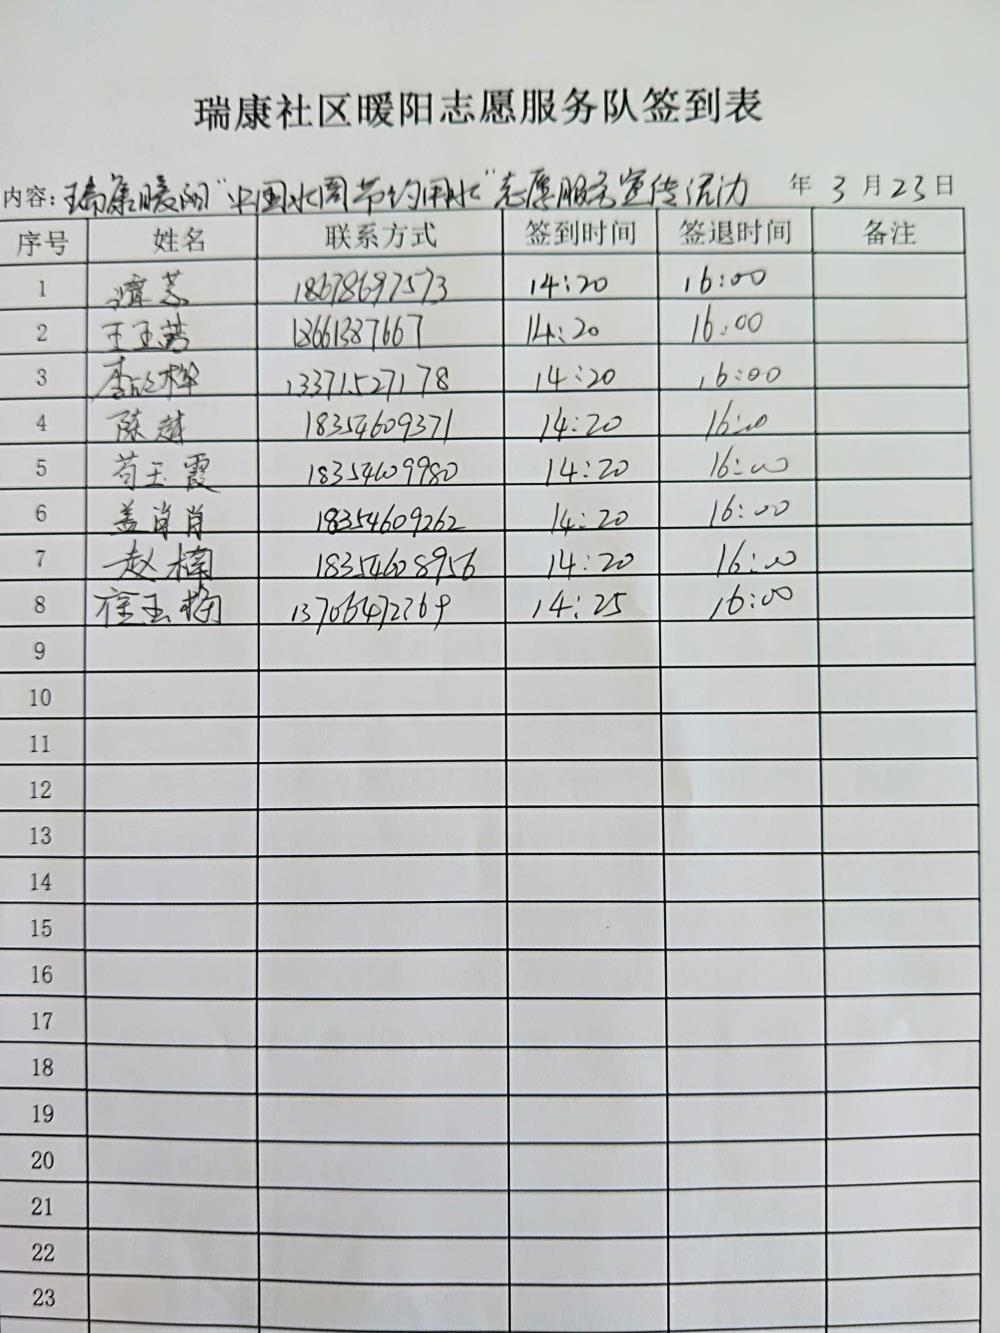 瑞康社区暖阳志愿服务队签到表
内容: 瑞康暖阳"中国水周节约用水"志愿服务宣传活动 年 3 月 23 日
序号 姓名 联系方式 签到时间 签退时间 备注
1 18678697573 14:20 16:00
2 王玉芸 13661387667 14:20 16:00
3 13371527178 14:20 16:00
4 陈越 18354609371 14:20 16:00
5 苟玉霞 18354609980 14:20 16:00
6 盖肖肖 18354609262 14:20 16:00
7 赵楠 18354608956 14:20 16:00
8 徐玉梅 13706472769 14:25 16:00
9
10
11
12
13
14
15
16
17
18
19
20
21
22
23